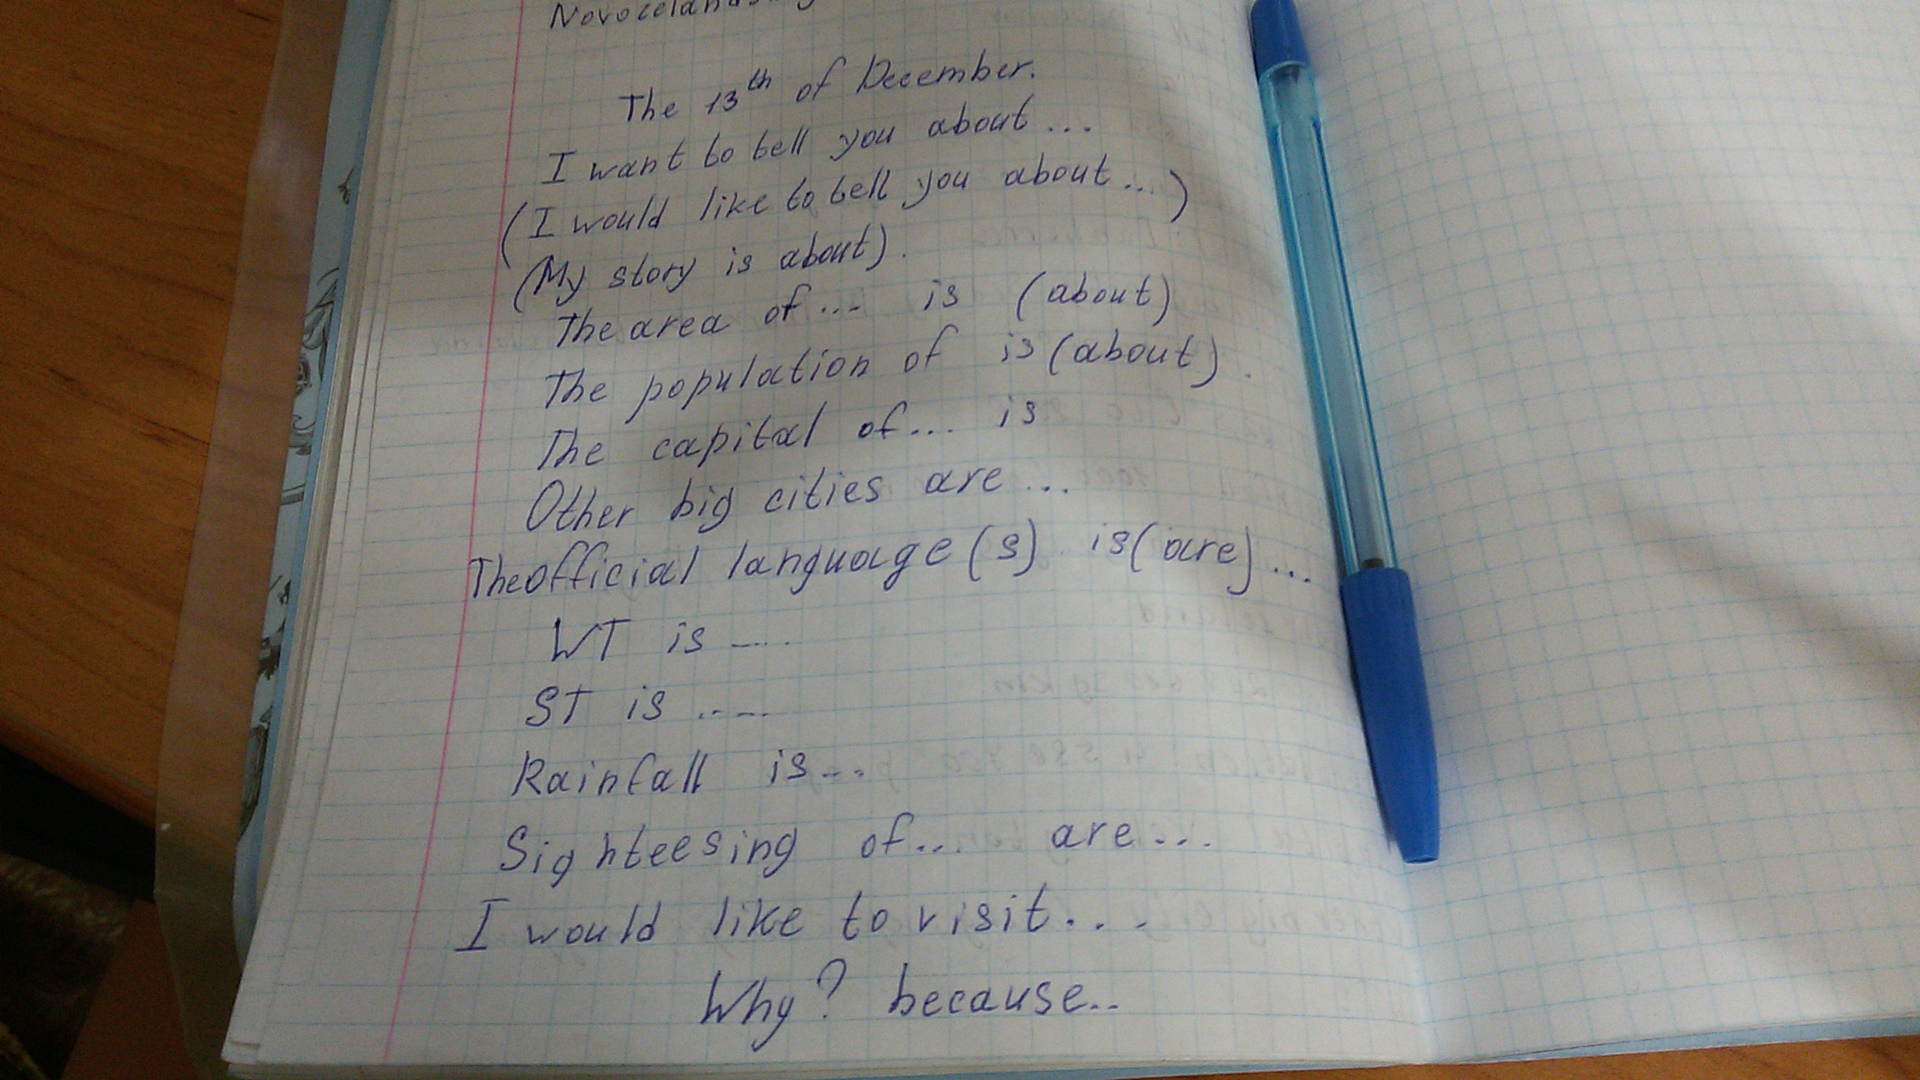 The 13th of December.
I want to tell you about....
(I would like to tell you about...)
(My story is about).
The area of... is (about)
The population of is (about).
The capital of... is
Other big cities are...
The official language(s) is (are)...
WT is ....
ST is ....
Rainfall is...
Sighteesing of... are...
I would like to visit...
Why? because...